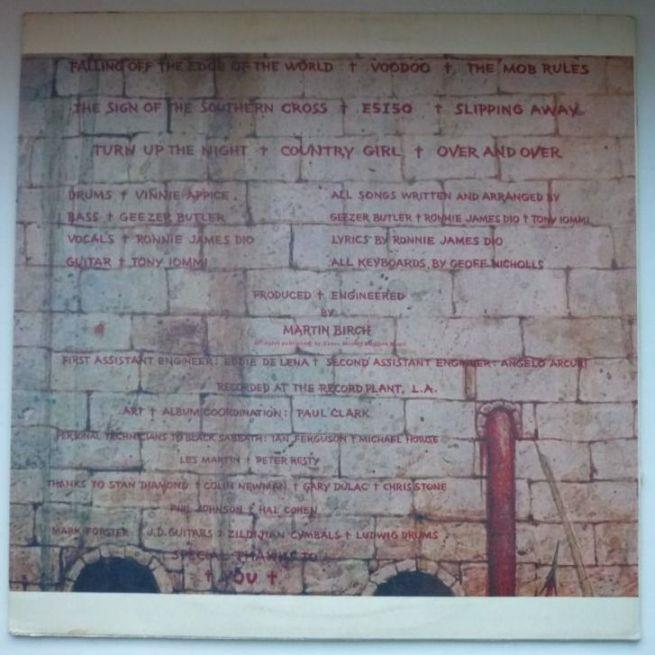 FALLING OFF THE EDGE OF THE WORLD † VOODOO † THE MOB RULES
THE SIGN OF THE SOUTHERN CROSS † E5150 † SLIPPING AWAY
TURN UP THE NIGHT † COUNTRY GIRL † OVER AND OVER
DRUMS † VINNIE APPICE
ALL SONGS WRITTEN AND ARRANGED BY
BASS † GEEZER BUTLER
GEEZER BUTLER † RONNIE JAMES DIO † TONY IOMMI
VOCALS † RONNIE JAMES DIO
LYRICS BY RONNIE JAMES DIO
GUITAR † TONY IOMMI
ALL KEYBOARDS BY GEOFF NICHOLLS
PRODUCED † ENGINEERED
BY
MARTIN BIRCH
FIRST ASSISTANT ENGINEER: EDDIE DE LENA † SECOND ASSISTANT ENGINEER: ANGELO ARCURI
RECORDED AT THE RECORD PLANT, L.A.
ART † ALBUM COORDINATION: PAUL CLARK
PERSONAL TECHNICIANS TO BLACK SABBATH: IAN FERGUSON † MICHAEL HOWSE
LES MARTIN † PETER RESTY
THANKS TO STAN DIAMOND † COLIN NEWMAN † GARY DULAC † CHRIS STONE
PHIL JOHNSON † HAL COHEN
MARK FORSTER † J.D. GUITARS † ZILDJIAN CYMBALS † LUDWIG DRUMS
SPECIAL THANKS TO
† YOU †